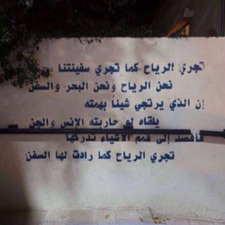 تجري الرياح كما تجري سفينتنا
نحن الرياح ونحن البحر والسفن
إن الذي يرتجي شيئاً بهمته
يلقاه لو حاربته الانس والجن
فاقصد إلى قمم الاشياء تدركها
تجري الرياح كما رادت لها السفن